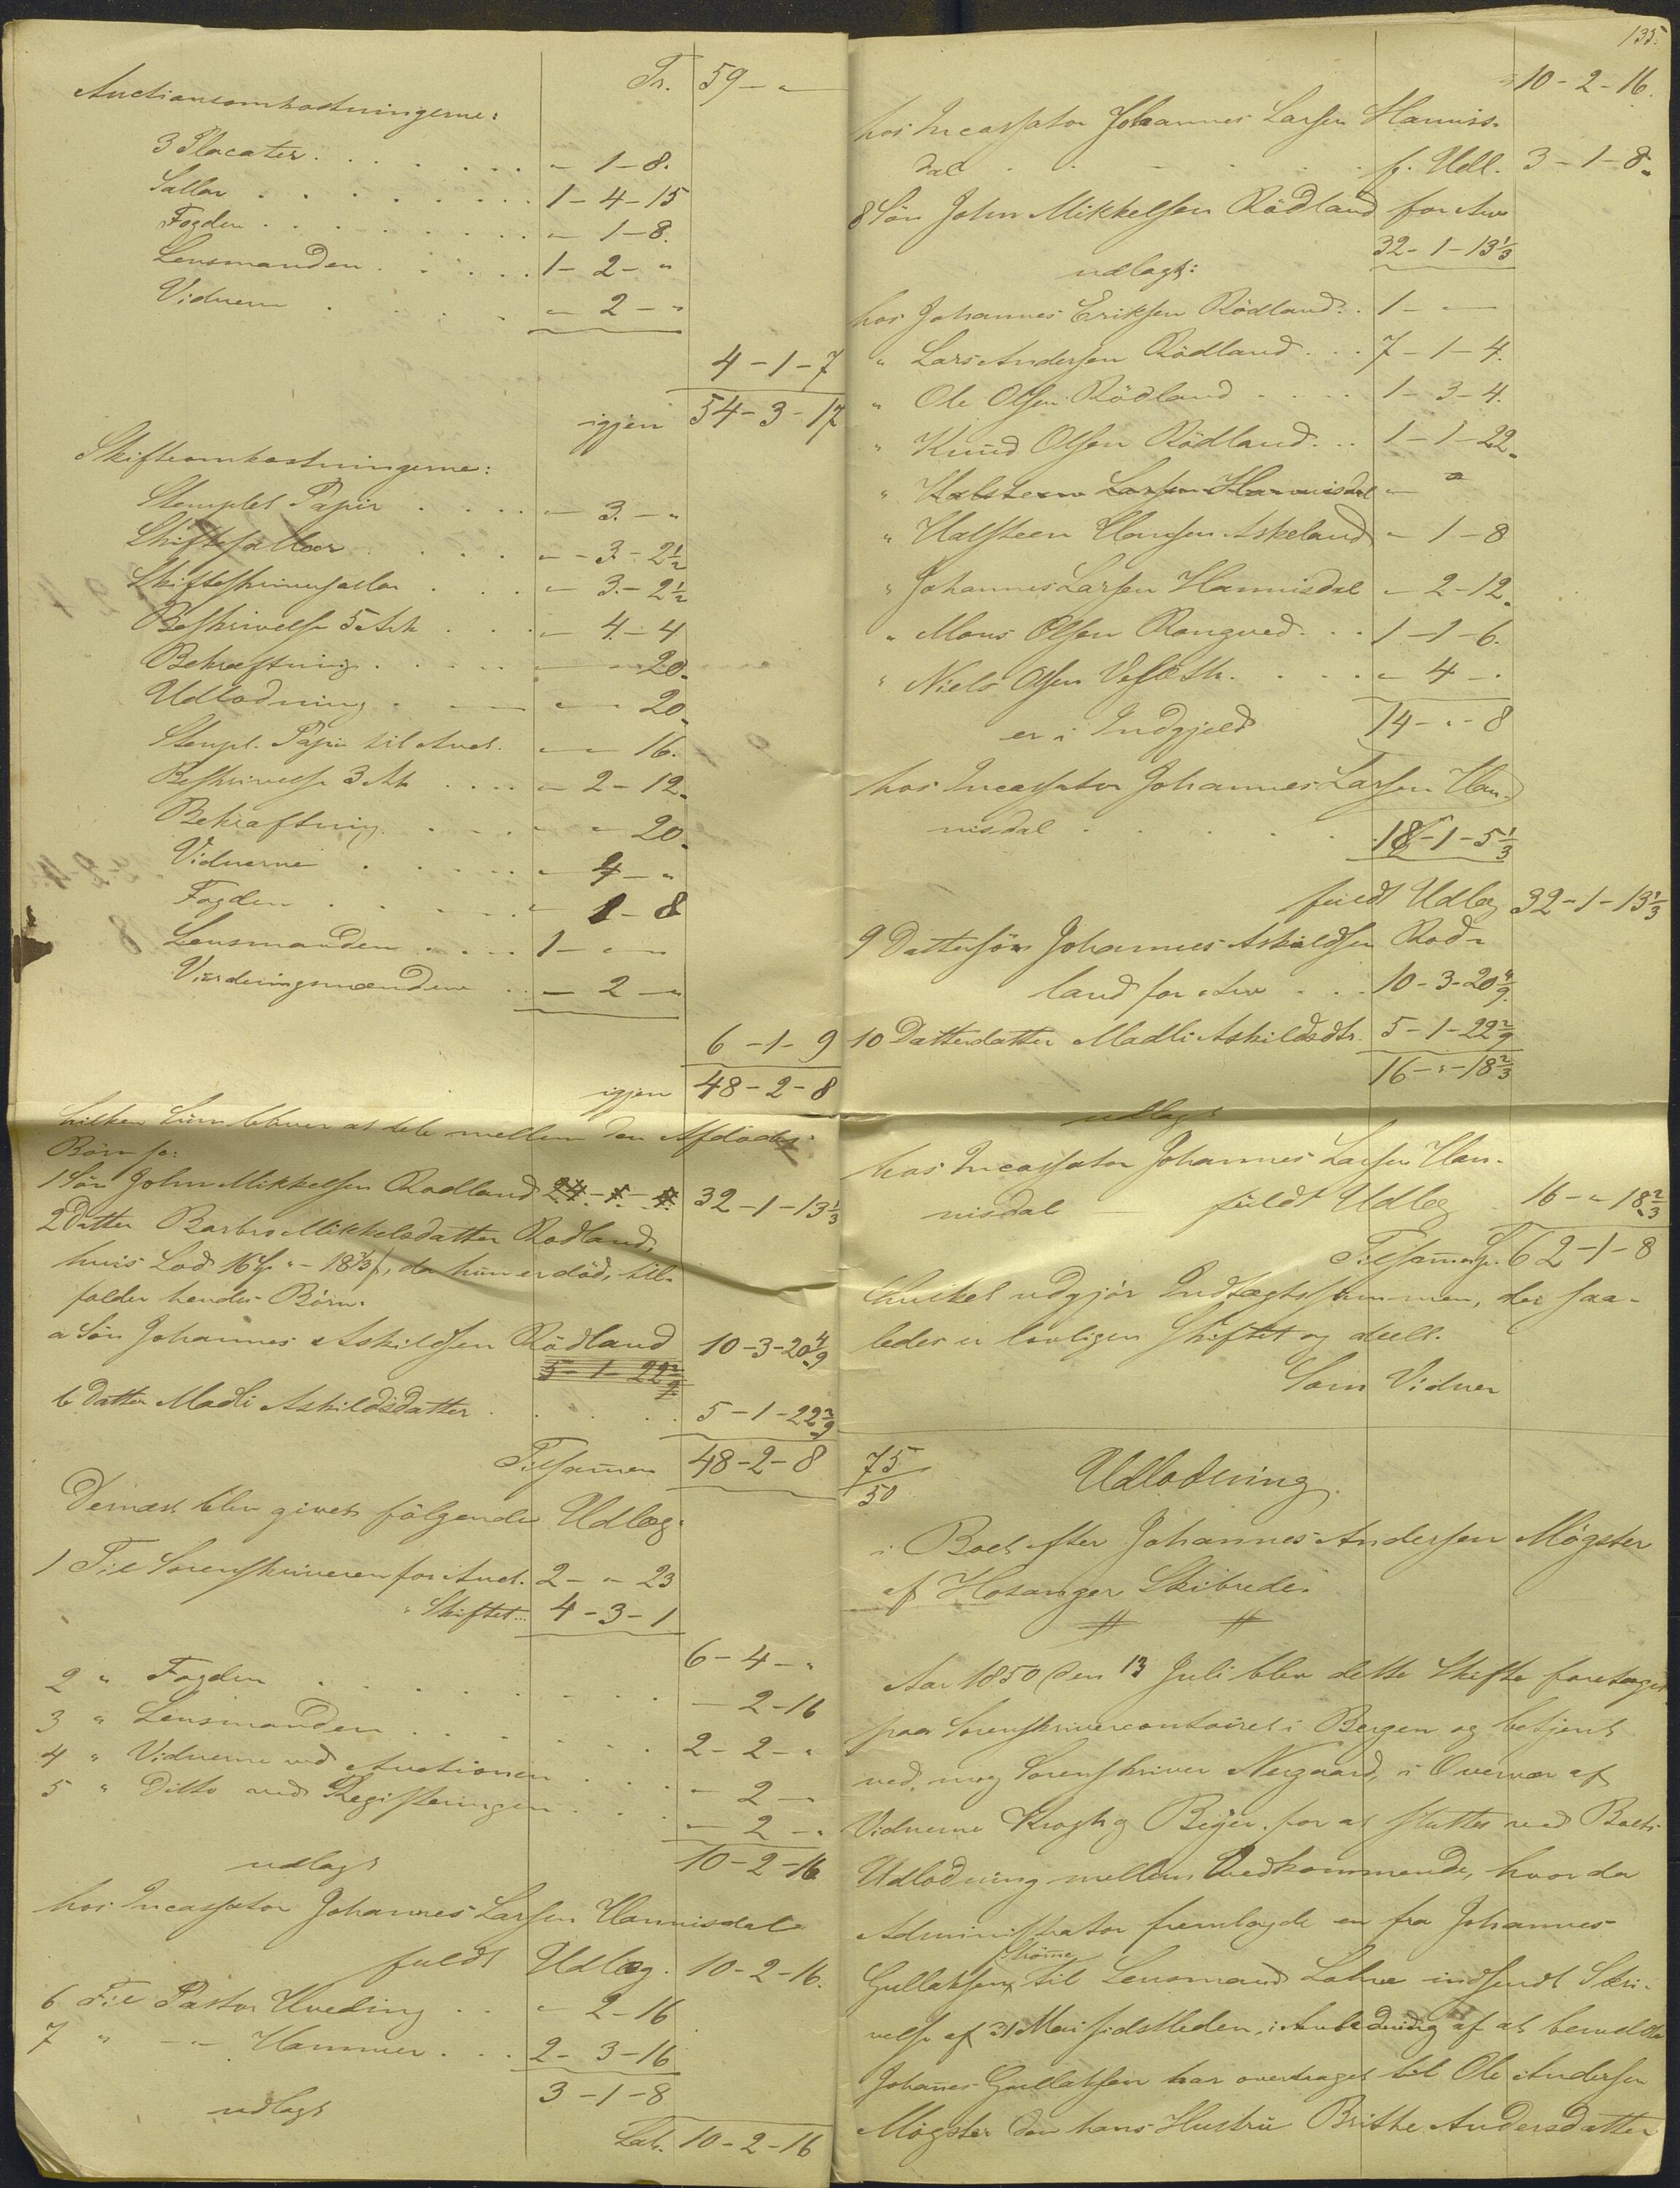 Tr. 59 - "
Auctionsomkostningerne:
3 Placater . . . . . . . " - 1 - 8.
Sallær . . . . . . . . 1 - 4 - 15
Fogden . . . . . . . . " - 1 - 8.
Lensmanden . . . . . 1 - 2 - "
Vidnerne . . . . " - 2 - "
4 - 1 - 7
igjen 54 - 3 - 17
Skifteomkostningerne:
Stemplet Papir . . . . " - 3. - "
Skiftesallær . . . . " - 3. - 2½
Skifteskriversallær . . . " - 3. - 2½
Beskrivelse 5 Ark . . . " - 4 - 4
Bekræftning . . . . . " - " 20.
Udlodning . . . " - " 20.
Stempl. Papir til Auct. " - " 16.
Beskrivelse 3 Ark . . . . " - 2 - 12.
Bekræftning . . . . " - " 20.
Vidnerne . . . . . " 4 - "
Fogden . . . . . " 1 - 8
Lensmanden . . . . 1 - " - "
Vurderingsmændene . . " - 2 - "
6 - 1 - 9
igjen 48 - 2 - 8
hvilken Sum bliver at dele mellem den Afdødes
Børn so:
1 Søn John Mikkelsen Rödland 32 - 1 - 13⅓
2 Datter Barbro Mikkelsdatter Rödland,
hvis Lod 16 Sp " - 18⅔ s, da hun er död, til-
falder hendes Börn:
a Sön Johannes Askildsen Rödland 10 - 3 - 20 4/9
5 - 1 - 22 2/9
b Datter Madli Askildsdatter . . . . . 5 - 1 - 22 2/9
Tilsamen 48 - 2 - 8
Dernæst blev givet fölgende Udlæg:
1 Til Sorenskriveren for Auct. 2 - " - 23
" Skiftet... 4 - 3 - 1
6 - 4 - "
2 " Fogden . . . . . . . . " - 2 - 16
3 " Lensmanden . . . . . . 2 - 2 - "
4 " Vidnerne ved Auctionen . . . " - 2 - "
5 " Ditto ved Registeringen . . . " - 2 - "
udlagt 10 - 2 - 16
hos Incassator Johannes Larsen Hannisdal
fuldt Udlæg. 10 - 2 - 16.
6 Til Pastor Uveding . . " - 2 - 16
7 " - " - Hammer . . . 2 - 3 - 16
3 - 1 - 8
udlagt
Lat. 10 - 2 - 16
135.
10 - 2 - 16.
hos Incassator Johannes Larsen Hannis-
dal . . . . . . f. Udl. 3 - 1 - 8.
8 Sön John Mikkelsen Rödland for Arv
32 - 1 - 13⅓
udlagt:
hos Johannes Eriksen Rödland . . 1 - " - "
" Lars Andersen Rödland . . . 7 - 1 - 4.
" Ole Olsen Rödland . . . . 1 - 3 - 4.
" Knud Olsen Rödland . . . 1 - 1 - 22.
" Halsteen Larsen Hannisdal " - "
" Halsteen Hansen Askeland " - 1 - 8
" Johannes Larsen Hannisdal " - 2 - 12.
" Mons Olsen Rongved . . . 1 - 1 - 6.
" Niels Olsen . . . . " - 4 - "
er i Indgjeld 14 - " - 8
hos Incassator Johannes Larsen Han-
nisdal . . . . . 18 - 1 - 5⅓
fuldt Udlæg 32 - 1 - 13⅓
9 Dattersön Johannes Askildsen Röd-
land for Arv . . . 10 - 3 - 20 4/9
10 Datterdatter Madli Askildsdtr. 5 - 1 - 22 2/9
16 - " - 18⅔
udlagt
hos Incassator Johannes Larsen Han-
nisdal - fuldt Udlæg 16 - " - 18⅔
Tilsamen Sp. 62 - 1 - 8
Hvilket udgjör Indtægtssummen, der saa-
ledes er lovligen skiftet og deelt.
Som Vidner
75/50
Udlodning
i Boet efter Johannes Andersen Mögster
af Hosanger Skibrede.
Aar 1850 den 13 Juli blev dette Skifte foretaget
paa Sorenskrivercontoiret i Bergen og betjent
ved mig Sorenskriver Nergaard, i Overvær af
Vidnerne Krogh og Beyer, for at sluttes ved Boets
Udlodning mellem Vedkommende, hvor da
Administrator fremlagde en fra Johannes
Gullaksen Ströme til Lensmand Lohne indsendt Skri-
velse af 31 Mai sidstleden, i Anledning af at bemeldte
Johanes Gullaksen har overtaget til Ole Andersen
Mögster den hans Hustru Brithe Andersdatter